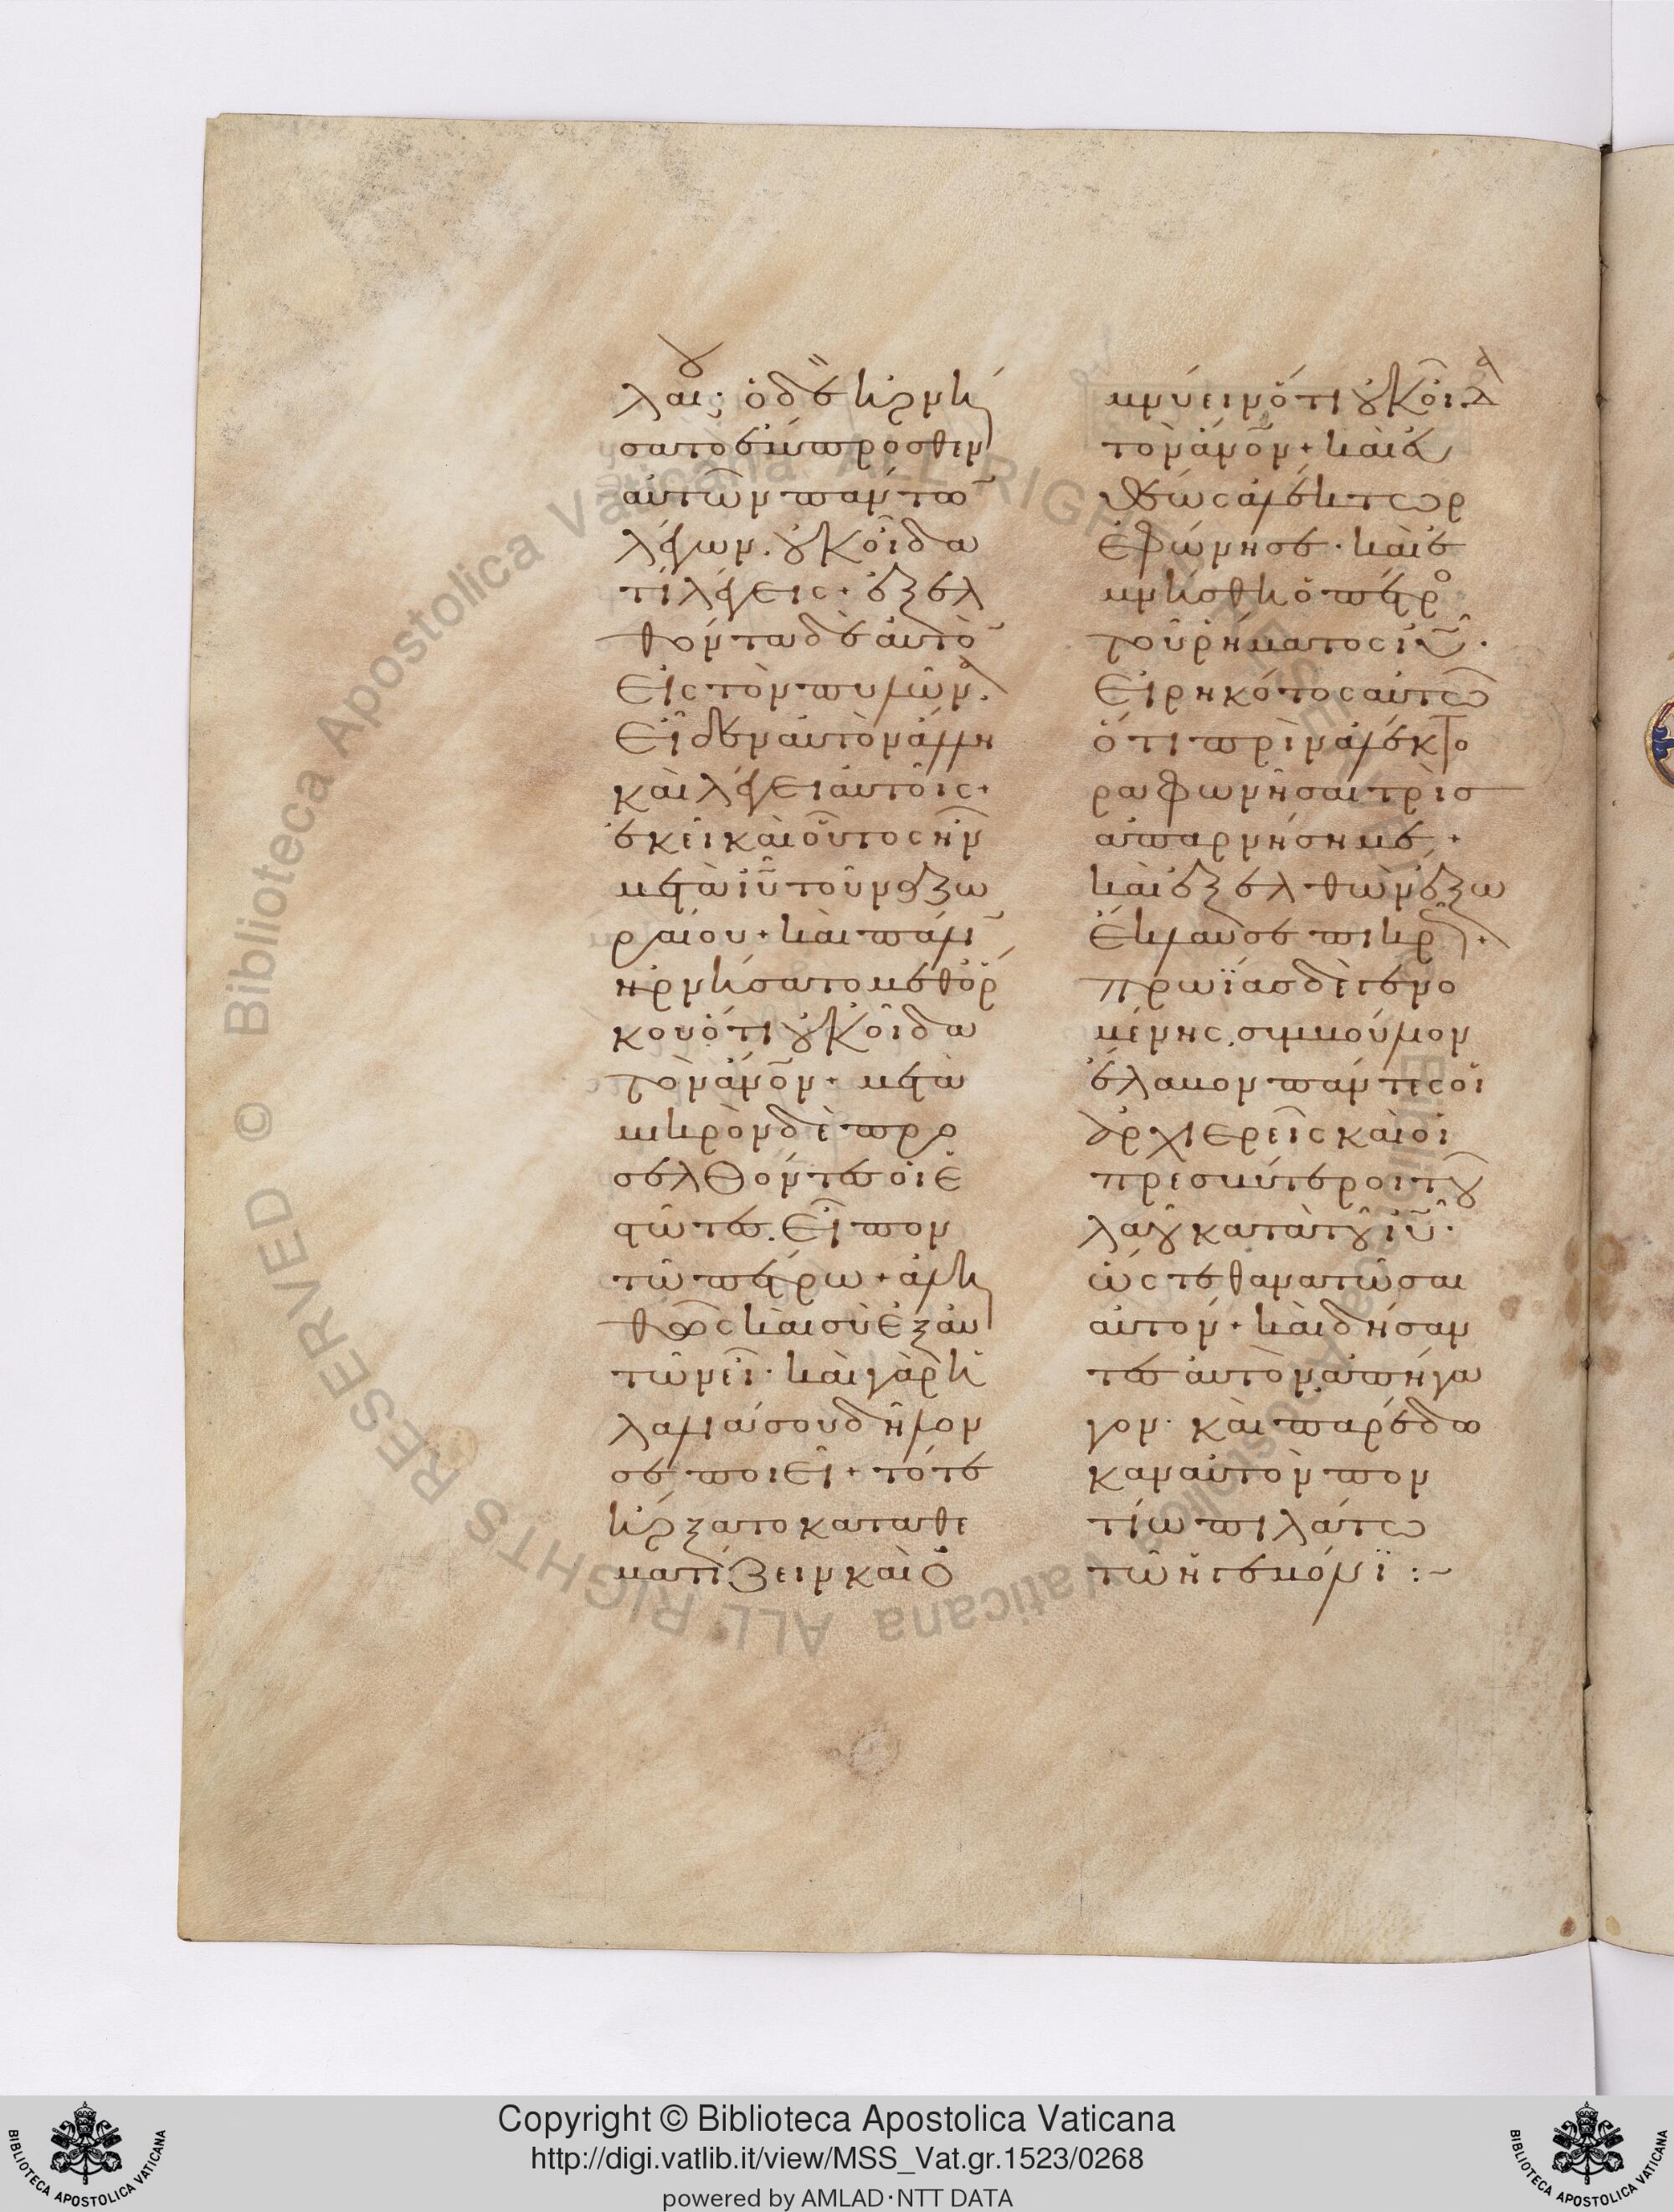 λαίου· ὁ δὲ ἠρνή
σατο ἔμπροσθεν
αὐτῶν πάντω̅
λέγων. οὐκ οἶδα
τί λέγεις + ἐξελ
θόντα δὲ αὐτὸ̅
εἰς τὸν πυλῶνα.
εἶδεν αὐτὸν ἄλλη
καὶ λέγει αὐτοῖς +
ἐκεῖ καὶ οὗτος ἦν
μετὰ ιυ τοῦ ναζω
ραίου + καὶ πάλι̅
ἠρνήσατο μεθ ὅρ
κου ὅτι οὐκ οἶδα
τὸν ανον + μετὰ
μικρὸν δὲ προ
σελθόντες οἱ ἑ
στῶτες. εἶπον
τῶ πέτρω + ἀλη
θῶς καὶ σὺ ἐξ αὐ
τῶν εἶ· καὶ γὰρ ἡ
λαλιά σου δῆλον
σε ποιεῖ + τότε
ἤρξατο καταθε
ματίζειν καὶ ὀ
μνύειν ὅτι οὐκ οἶδα
τὸν ανον + καὶ εὐ
θέως ἀλέκτωρ
ἐφώνησε· καὶ ἐ
μνήσθη ὁ πέτρο
τοῦ ῥήματος ιυ·
εἰρηκότος αὐτῶ
ὅτι πρὶν ἀλέκτο
ρα φωνῆσαι τρὶσ
ἀπαρνήση με +
καὶ ἐξελθὼν ἔξω
ἔκλαυσε πικρῶς +
πρωΐας δὲ γενο
μένης. συμβούλιον
ἔλαβον πάντες οἱ
ἀρχιερεῖς καὶ οἱ
πρεσβύτεροι τοῦ
λαοῦ κατὰ τοῦ ιυ·
ὥστε θανατῶσαι
αὐτόν + καὶ δήσαν
τες αὐτὸν ἀπήγα
γον· καὶ παρέδω
καν αὐτὸν πον
τίω πιλάτω
τῶ ἡγεμόνϊ :~
Copyright © Biblioteca Apostolica Vaticana
http://digi.vatlib.it/view/MSS_Vat.gr.1523/0268
powered by AMLAD·NTT DATA
© Biblioteca Apostolica Vaticana ALL RIGHTS RESERVED
BIBLIOTECA APOSTOLICA VATICANA
BIBLIOTECA APOSTOLICA VATICANA